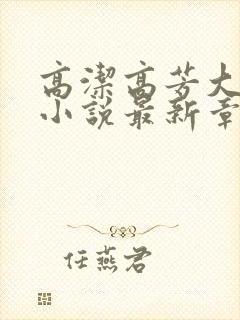 高潔高芳大
小說最新章
任燕君